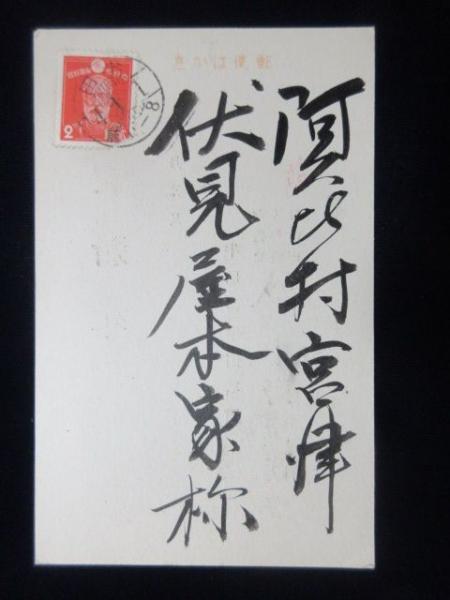 郵便はがき
阿久比村宮津
伏見屋本家様